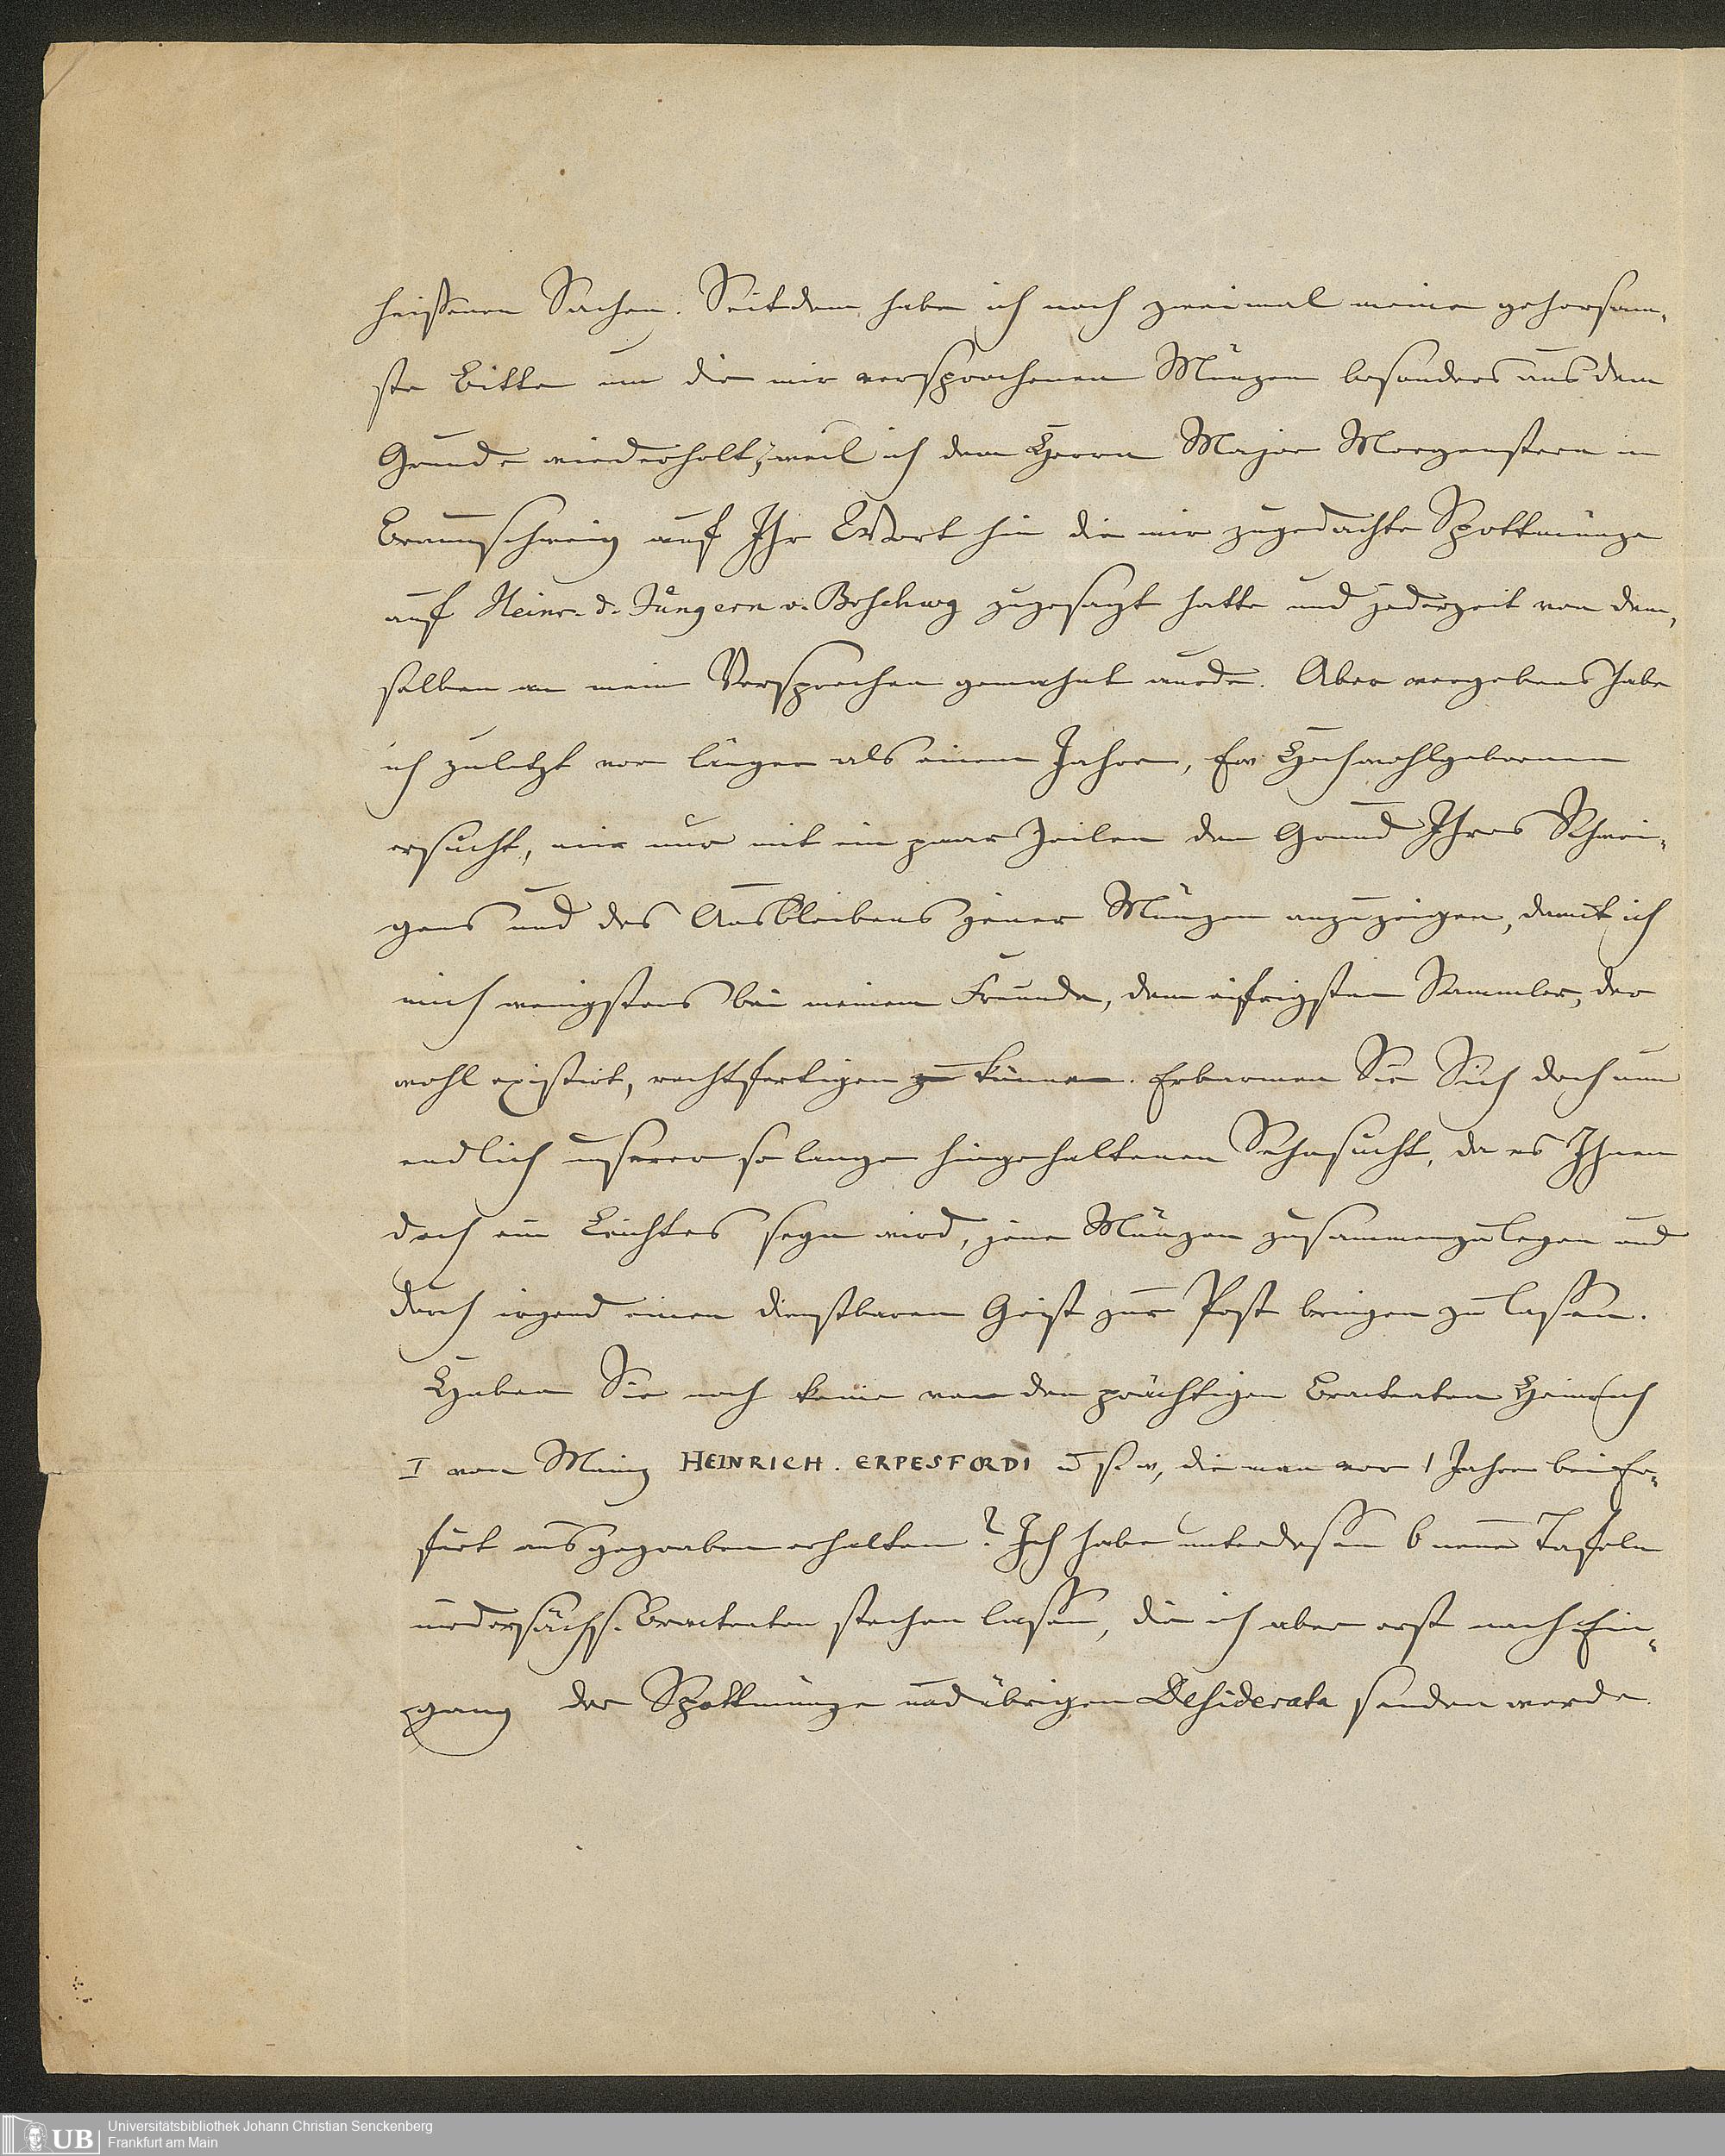 heißenen Sachen. Seitdem habe ich noch zweimal meine gehorsam-
ste Bitte um die mir versprochenen Münzen besonders aus dem
Grunde wiederholt, weil ich dem Herrn Major Morgenstern in
Braunschweig auf Ihr Wort hin die mir zugedachte Spottmünze
auf Heinr. d. Jüngern v. Brschwg zugesagt hatte und jederzeit von dem-
selben an mein Versprechen gemahnt wurde. Aber vergebens habe
ich zuletzt vor länger als einem Jahre, Ew Hochwohlgebornen
ersucht, mir nur mit ein paar Zeilen den Grund Ihres Schwei-
gens und des Ausbleibens jener Münzen anzuzeigen, damit ich
mich wenigstens bei meinem Freunde, dem eifrigsten Sammler, der
wohl existirt, rechtfertigen zu können. Erbarmen Sie Sich doch nun
endlich unserer so lange hingehaltenen Sehnsucht, da es Ihnen
doch ein Leichtes seyn wird, jene Münzen zusammenzulegen und
durch irgend einen dienstbaren Geist zur Post bringen zu lassen.
Haben Sie noch keine von den prächtigen Bracteaten Heinrich
I von Mainz HEINRICH. ERPESFORDI u. s. w, die man vor 1 Jahre bei Er-
furt ausgegraben erhalten? Ich habe unterdessen 6 neue Tafeln
niedersächs. Bracteaten stechen lassen, die ich aber erst nach Ein-
gang der Spottmünze und übrigen Desiderata senden werde.
UB Universitätsbibliothek Johann Christian Senckenberg
Frankfurt am Main